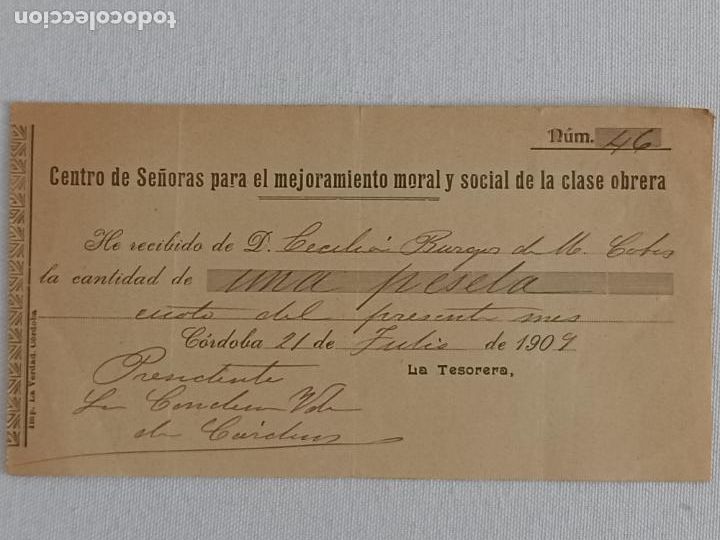 todocoleccion
Núm. 46
Centro de Señoras para el mejoramiento moral y social de la clase obrera
He recibido de D. Cecilia Burgos de M. Cobos
la cantidad de una peseta
cuota del presente mes
Córdoba 21 de Julio de 1909
La Tesorera,
Presidente
La Condesa Vda
de Cárdenas
Imp. La Verdad. Córdoba